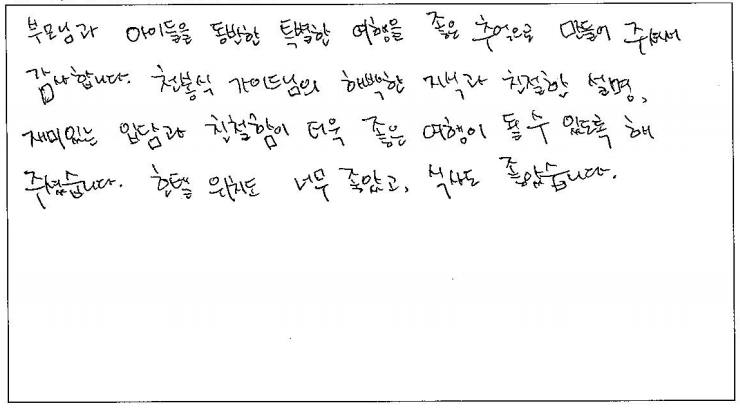 부모님과 아이들을 동반한 특별한 여행을 좋은 추억으로 만들어 주셔서
감사합니다. 천봉식 가이드님의 해박한 지식과 친절한 설명,
재미있는 입담과 친절함이 더욱 좋은 여행이 될 수 있도록 해
주셨습니다. 호텔 위치도 너무 좋았고, 식사도 좋았습니다.